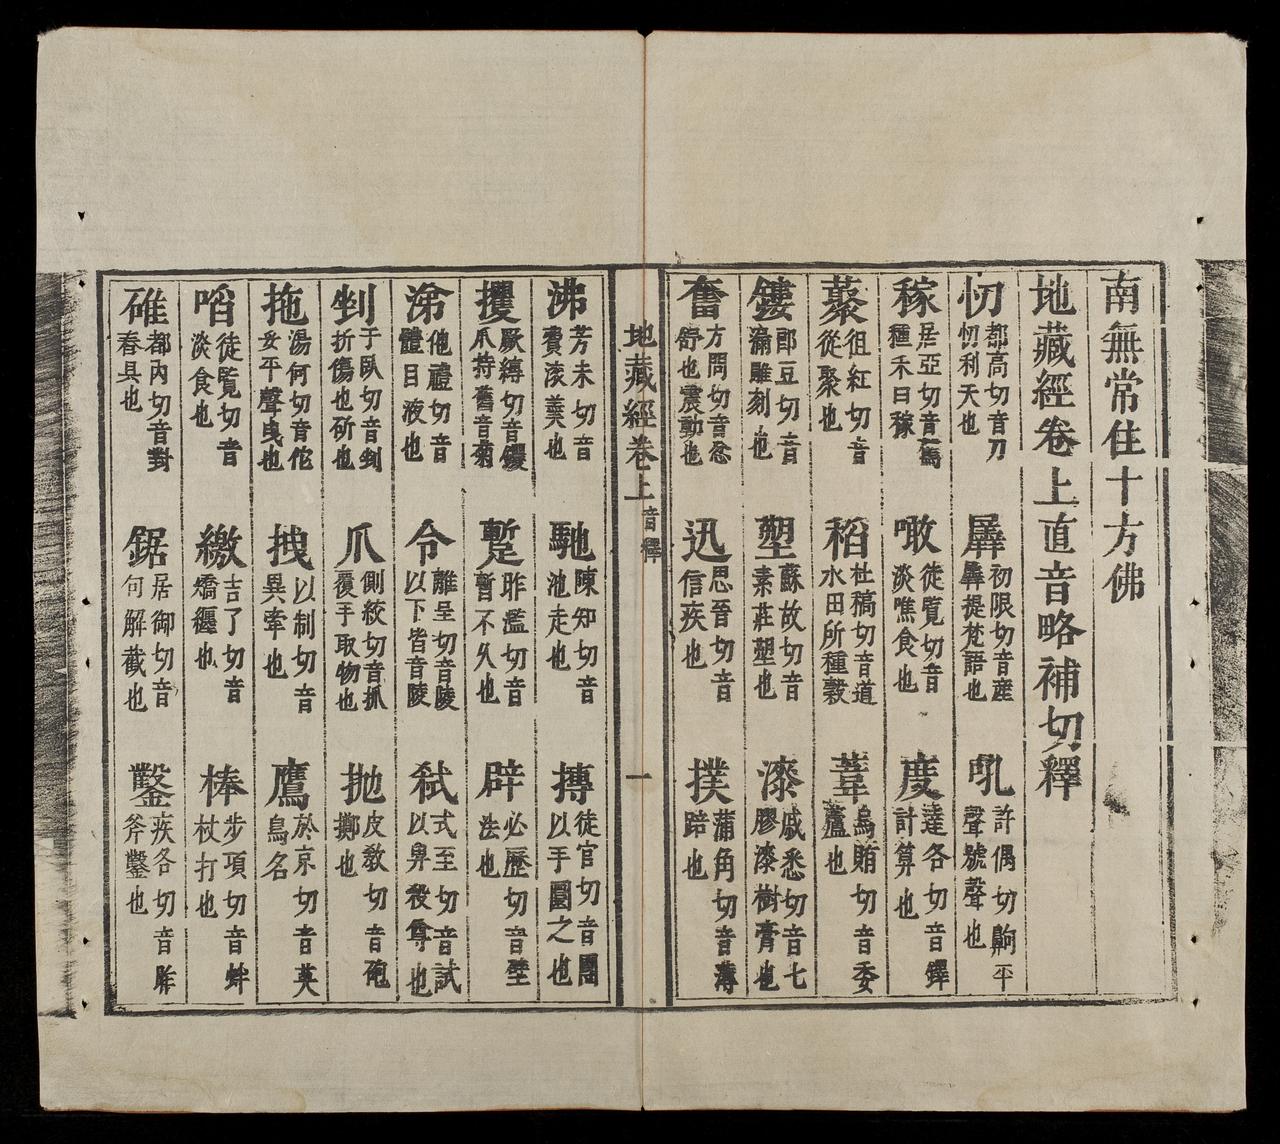 南無常住十方佛
地藏經卷上直音略補切釋
忉 都高切音刀忉利天也 羼 初限切音產羼提梵語也 吼 許偶切齁平聲號聲也
稼 居亞切音駕種禾曰稼 噉 徒覧切音淡噍食也 度 達各切音鐸計算也
藂 徂紅切音從聚也 稻 杜稿切音道水田所種穀 葦 烏賄切音委蘆也
鏤 郎豆切音漏雕刻也 塑 蘇故切音素莊塑也 漆 戚悉切音七膠漆樹膏也
奮 方問切音忿舒也震動也 迅 思晉切音信疾也 撲 蒲角切音薄踣也
地藏經卷上 音釋 一
沸 芳未切音費滾羹也 馳 陳知切音池走也 摶 徒官切音團以手圜之也
攫 厥縛切音钁爪持舊音菊 蹔 昨濫切音暫不久也 辟 必歷切音壁法也
涕 他禮切音體目液也 令 離呈切音陵以下皆音陵 弒 式至切音試以卑殺尊也
剉 于臥切音剉折傷也斫也 爪 側絞切音抓覆手取物也 拋 皮敎切音砲擲也
拖 湯何切音佗妥平聲曳也 拽 以制切音異牽也 鷹 於京切音英鳥名
啗 徒覧切音淡食也 繳 吉了切音矯纒也 棒 步項切音蚌杖打也
碓 都內切音對舂具也 鋸 居御切音 何解截也 鑿 疾各切音 斧鑿也